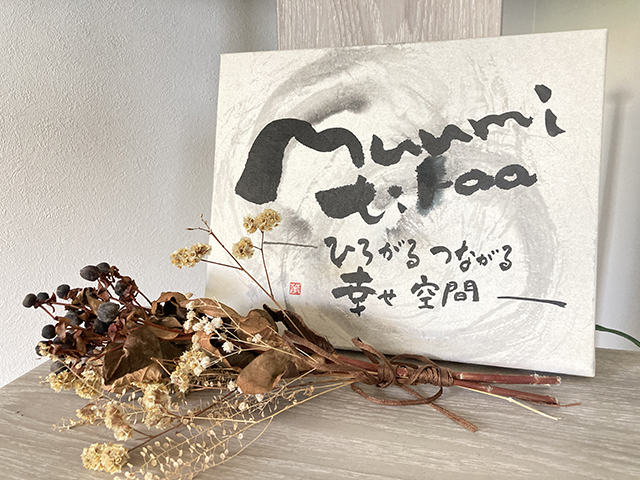 Muumi
ti:taa
ひろがる つながる
幸せ 空間